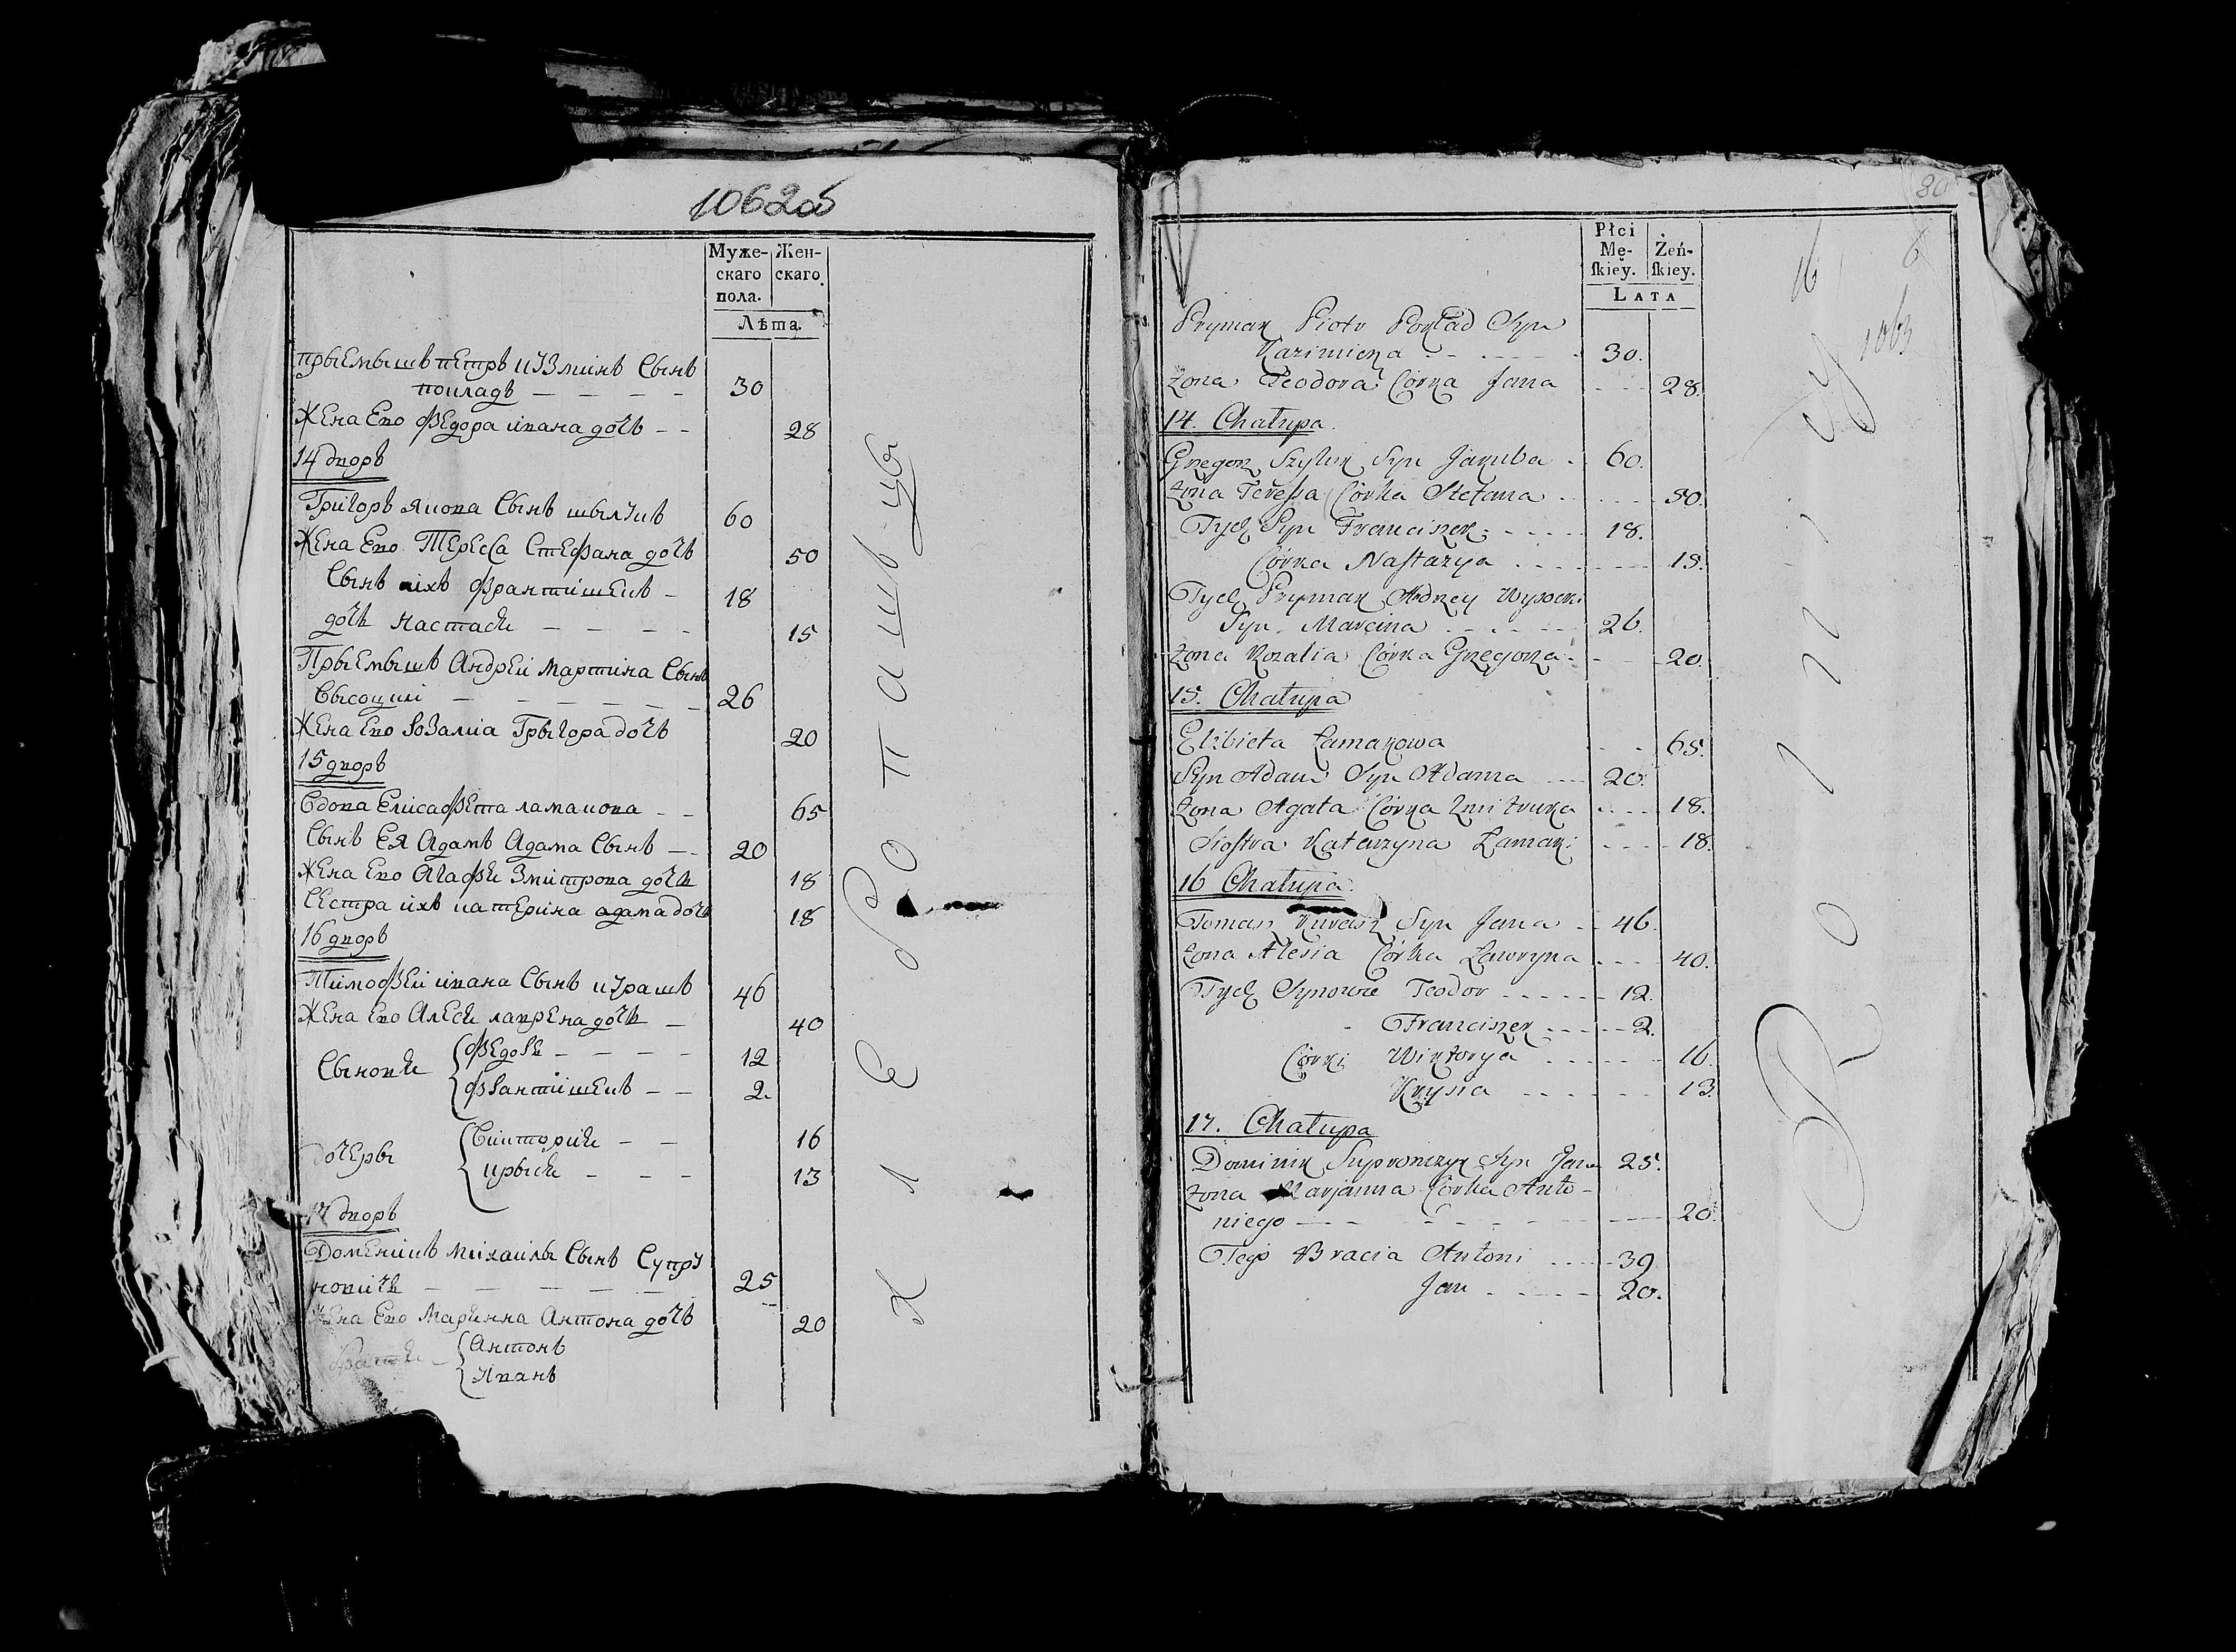 1062об
Муже-
скаго
пола.
Жен-
скаго.
Лѣта.
прыемышъ петръ кузминъ Сынъ
покладъ — — — — 30
Жена Ево Федора ивана дочъ - - 28
14 дворъ
Григоръ якова Сынъ шылукъ 60
Жена Ево Тересса Стефана дочъ 50
Сынъ ихъ францишекъ - 18
дочъ настася — — — - 15
Прыемышъ Андрей мартина Сынъ
Высоцкий — — — — — 26
Жена Ево розалиа Грыгора дочъ 20
15 дворъ
Вдова Елисафета ламакова - - 65
Сынъ Ея Адамъ Адама Сынъ — - 20
Жена Ево Агафя Змитрова дочъ 18
Сестра ихъ катерина адама дочъ 18
16 дворъ
Тимофей ивана Сынъ курашъ 46
Жена Ево Алеся лаврена дочъ - 40
Сыновя
федоръ - - - - 12
францишекъ - - 2.
дочеры
Викторія - - 16
крыся - - - 13
17 дворъ
Доменикъ михайлы Сынъ Супру
новичъ — — — — 25
Жена Ево Марянна Антона дочъ 20
братя
Антонъ
Иванъ
30
Płci
Mę-
ſkiey.
Żeń-
ſkiey.
LATA
16
1063
Prymak Piotr Pokład Syn
Kazimierza - - - - - 30.
żona Teodora Córka Jana - - - 28.
14. Chałupa.
Grzegorz Szyluk Syn Jakuba . 60.
żona Teressa Córka Stefana - - - 50.
Tych Syn Franciszek - - - - - 18.
Córka Nastazya - - - - 15.
Tych Prymak Andrzey Wysocki
Syn Marcina - - - - - 26.
żona Rozalia Córka Grzegorza - - 20.
15. Chałupa
Elżbieta Łamakowa - - 65.
Syn Adam Syn Adama - - - 20.
żona Agata Córka Zmitruka - - - 18.
Siostra Katarzyna Łamaki - - - 18.
16 Chałupa.
Tomasz Kurasz Syn Jana - - 46.
żona Alesia Córka Ławryna - - - 40.
Tych Synowie Teodor - - - - - 12.
Franciszek - - - - 2.
Córki Wiktorya - - - - - 16.
Krysia - - - - - 13.
17. Chałupa
Dominik Suprończyk Syn Jana 25.
żona Marjanna Córka Anto-
niego - - - - - - - 20.
Tego Bracia Antoni - - - - 39.
Jan - - - - - 20.